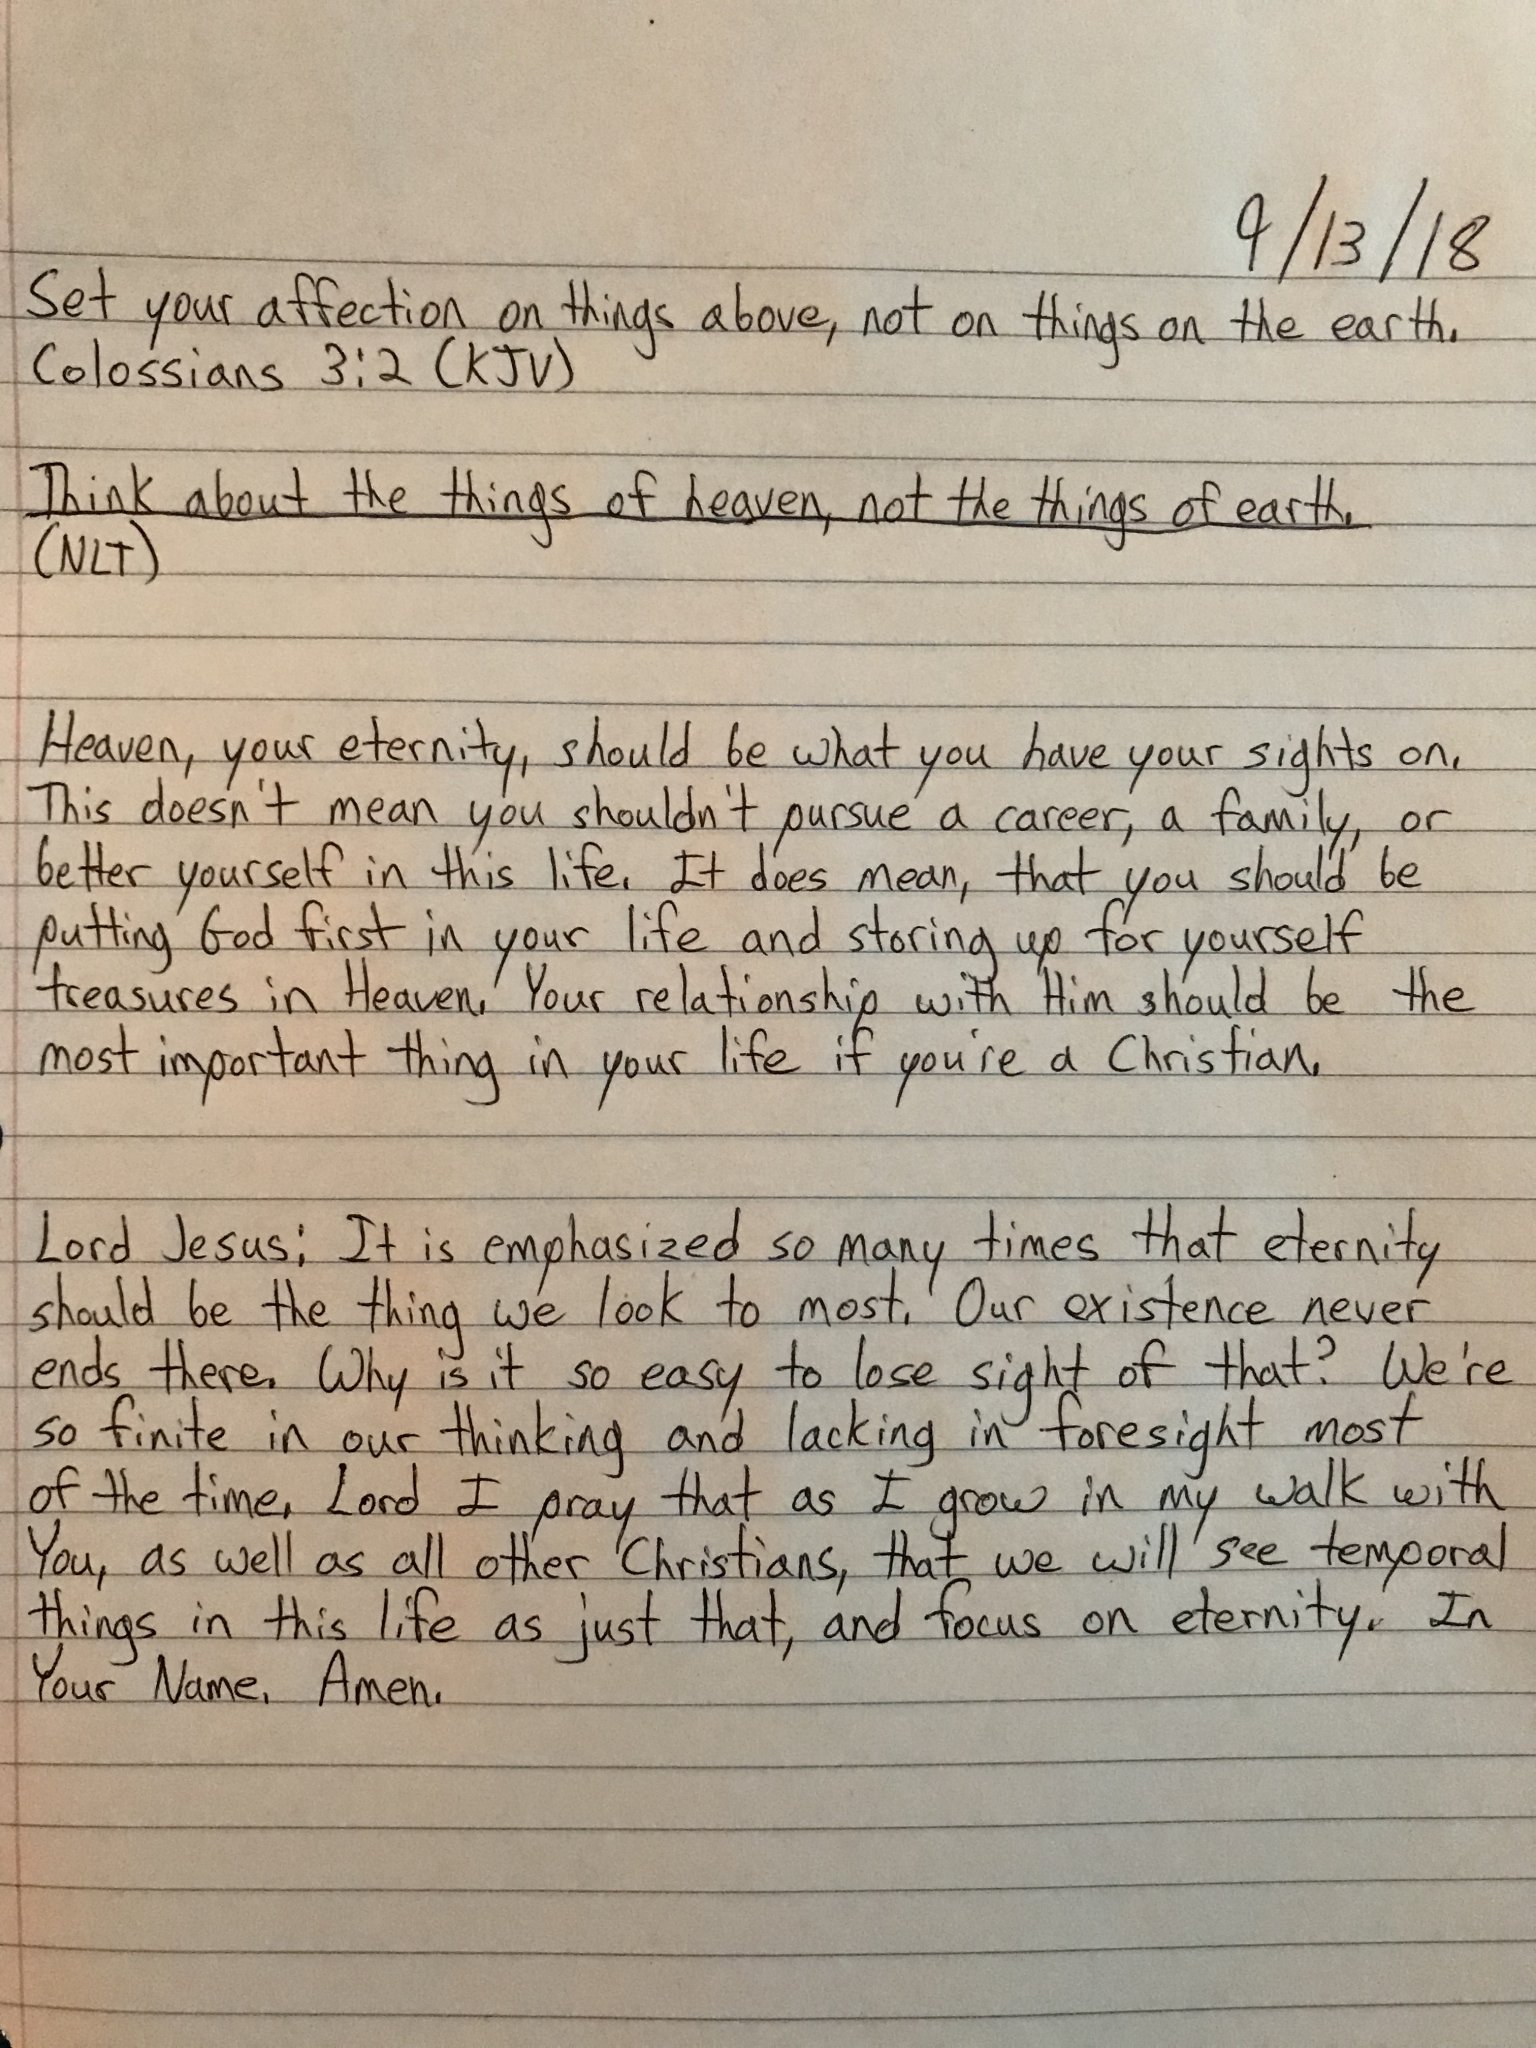 9/13/18
Set your affection on things above, not on things on the earth.
Colossians 3:2 (KJV)
Think about the things of heaven, not the things of earth.
(NLT)
Heaven, your eternity, should be what you have your sights on.
This doesn't mean you shouldn't pursue a career, a family, or
better yourself in this life. It does mean, that you should be
putting God first in your life and storing up for yourself
treasures in Heaven. Your relationship with Him should be the
most important thing in your life if you're a Christian.
Lord Jesus; It is emphasized so many times that eternity
should be the thing we look to most. Our existence never
ends there. Why is it so easy to lose sight of that? We're
so finite in our thinking and lacking in foresight most
of the time. Lord I pray that as I grow in my walk with
You, as well as all other Christians, that we will see temporal
things in this life as just that, and focus on eternity. In
Your Name. Amen.